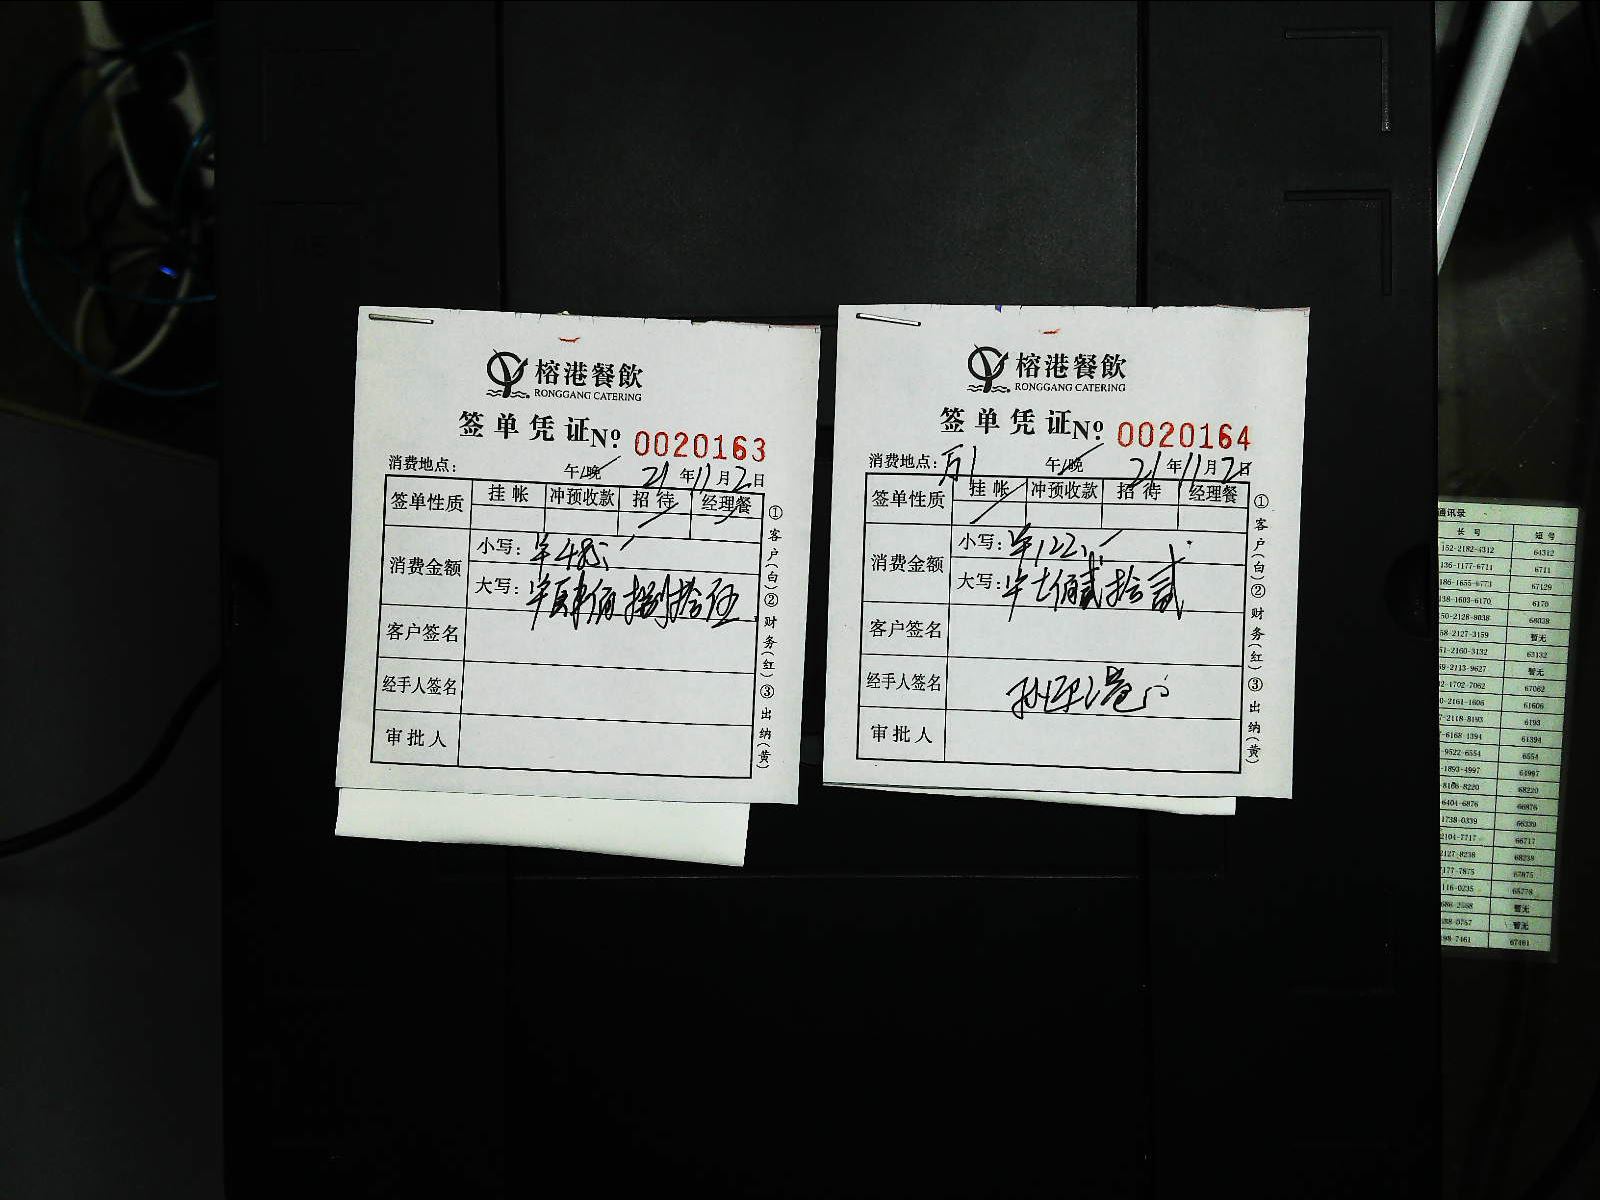 榕港餐飲
RONGGANG CATERING
签单凭证 Nº 0020163
消费地点： 午/晚 21年11月2日
签单性质 挂帐 冲预收款 招待 经理餐
消费金额 小写：
大写： 肆佰捌拾伍
客户签名
经手人签名
审批人
①客户(白)②财务(红)③出纳(黄)
榕港餐飲
RONGGANG CATERING
签单凭证 Nº 0020164
消费地点： 午/晚 21年11月2日
签单性质 挂帐 冲预收款 招待 经理餐
消费金额 小写：
大写： 佰贰拾贰
客户签名
经手人签名
审批人
①客户(白)②财务(红)③出纳(黄)
通讯录
长号 短号
152-2182-4312 64312
136-1177-6711 6711
186-1655-6773 67129
138-1603-6170 6170
50-2128-8038 68038
58-2127-3159 暂无
51-2160-3132 63132
59-2113-9627 暂无
2-1702-7062 67062
0-2161-1606 61606
7-2118-8193 6193
-6168-1394 61394
-9522-6554 6554
-1893-4997 64997
-8166-8220 68220
-6404-6876 66876
1738-0339 66339
2104-7717 66717
2127-8238 68238
177-7875 67875
116-0235
暂无
暂无
98-7461 67461